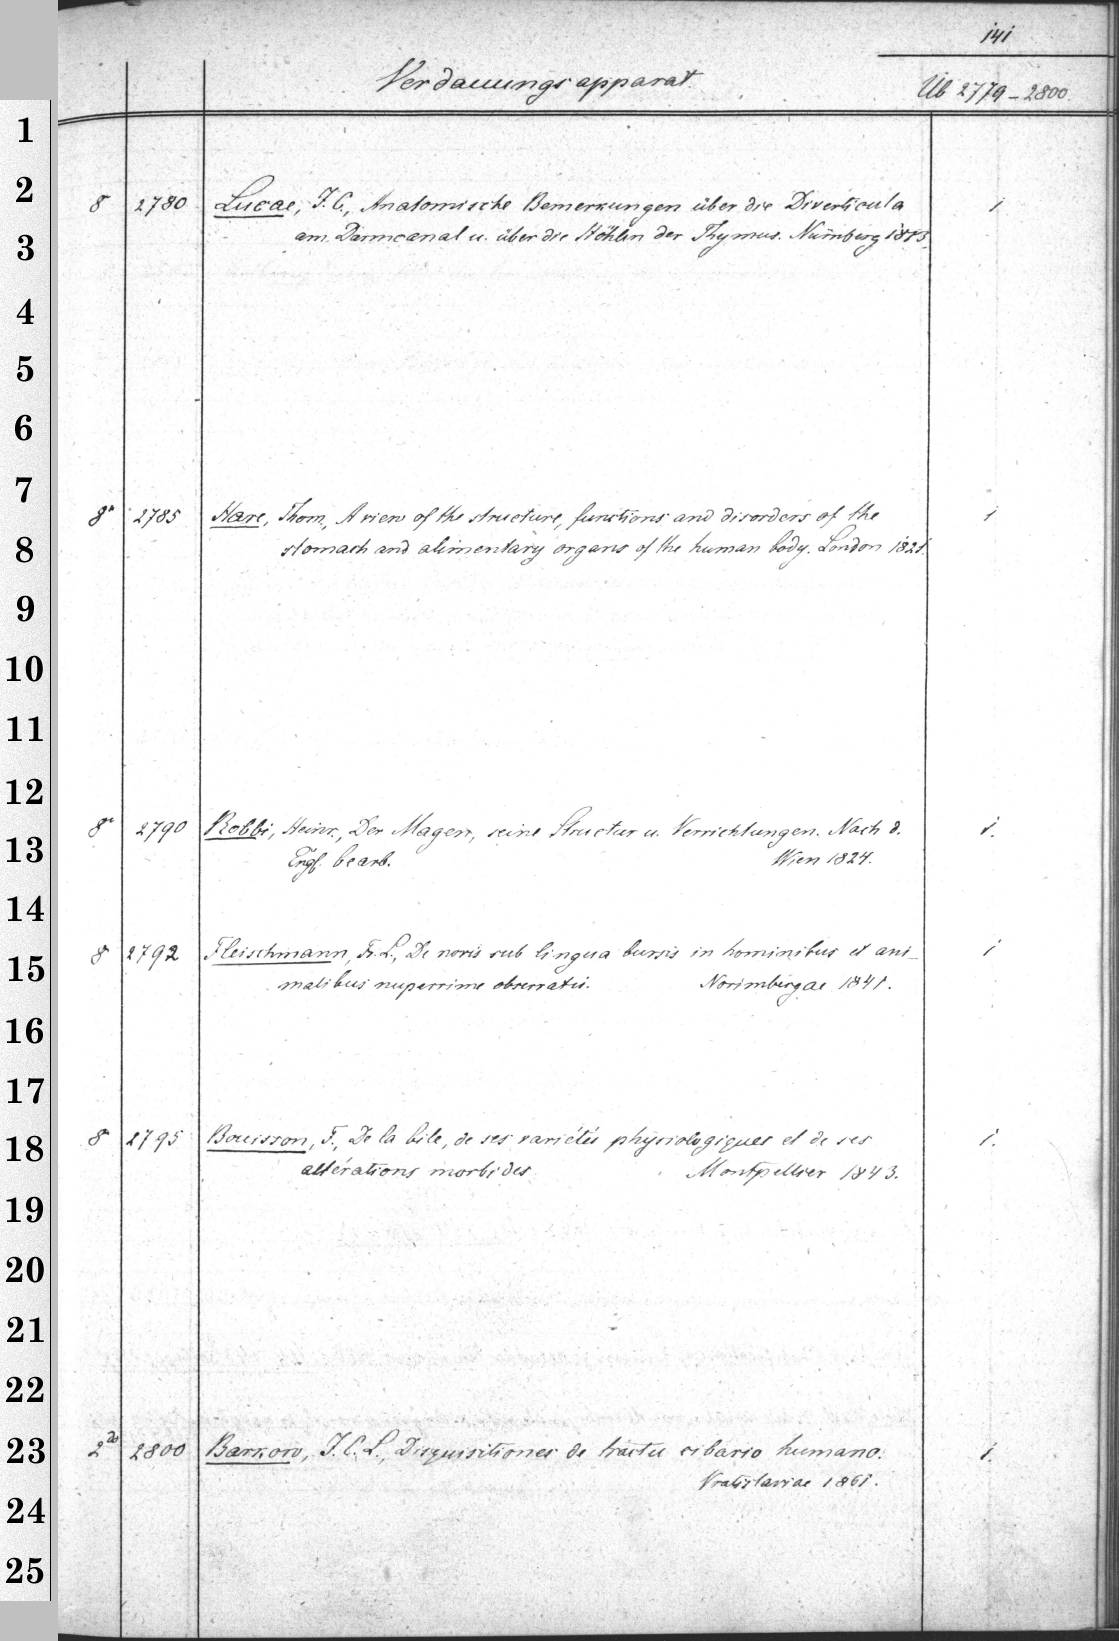 141
Verdauungsapparat.
Üb 2779-2800.
1
2
3
4
5
6
7
8
9
10
11
12
13
14
15
16
17
18
19
20
21
22
23
24
25
8 2780 Lucae, J. C., Anatomische Bemerkungen über die Diverticula 1
am Darmcanal u. über die Höhlen der Thymus. Nürnberg 1813.
8° 2785 Hare, Thom., A view of the structure, functions and disorders of the 1
stomach and alimentary organs of the human body. London 1821.
8° 2790 Robbi, Heinr., Der Magen, seine Structur u. Verrichtungen. Nach d. 1.
Engl. bearb. Wien 1824.
8 2792 Fleischmann, Fr. L., De novis sub lingua bursis in hominibus et ani- 1
malibus nuperrime observatis. Norimbergae 1841.
8° 2795 Bouisson, F., De la bile, de ses variétés physiologiques et de ses 1.
altérations morbides Montpellier 1843.
2° 2800 Barkow, J. C. L., Disquisitiones de tractu cibario humano. 1.
Vratislaviae 1861.